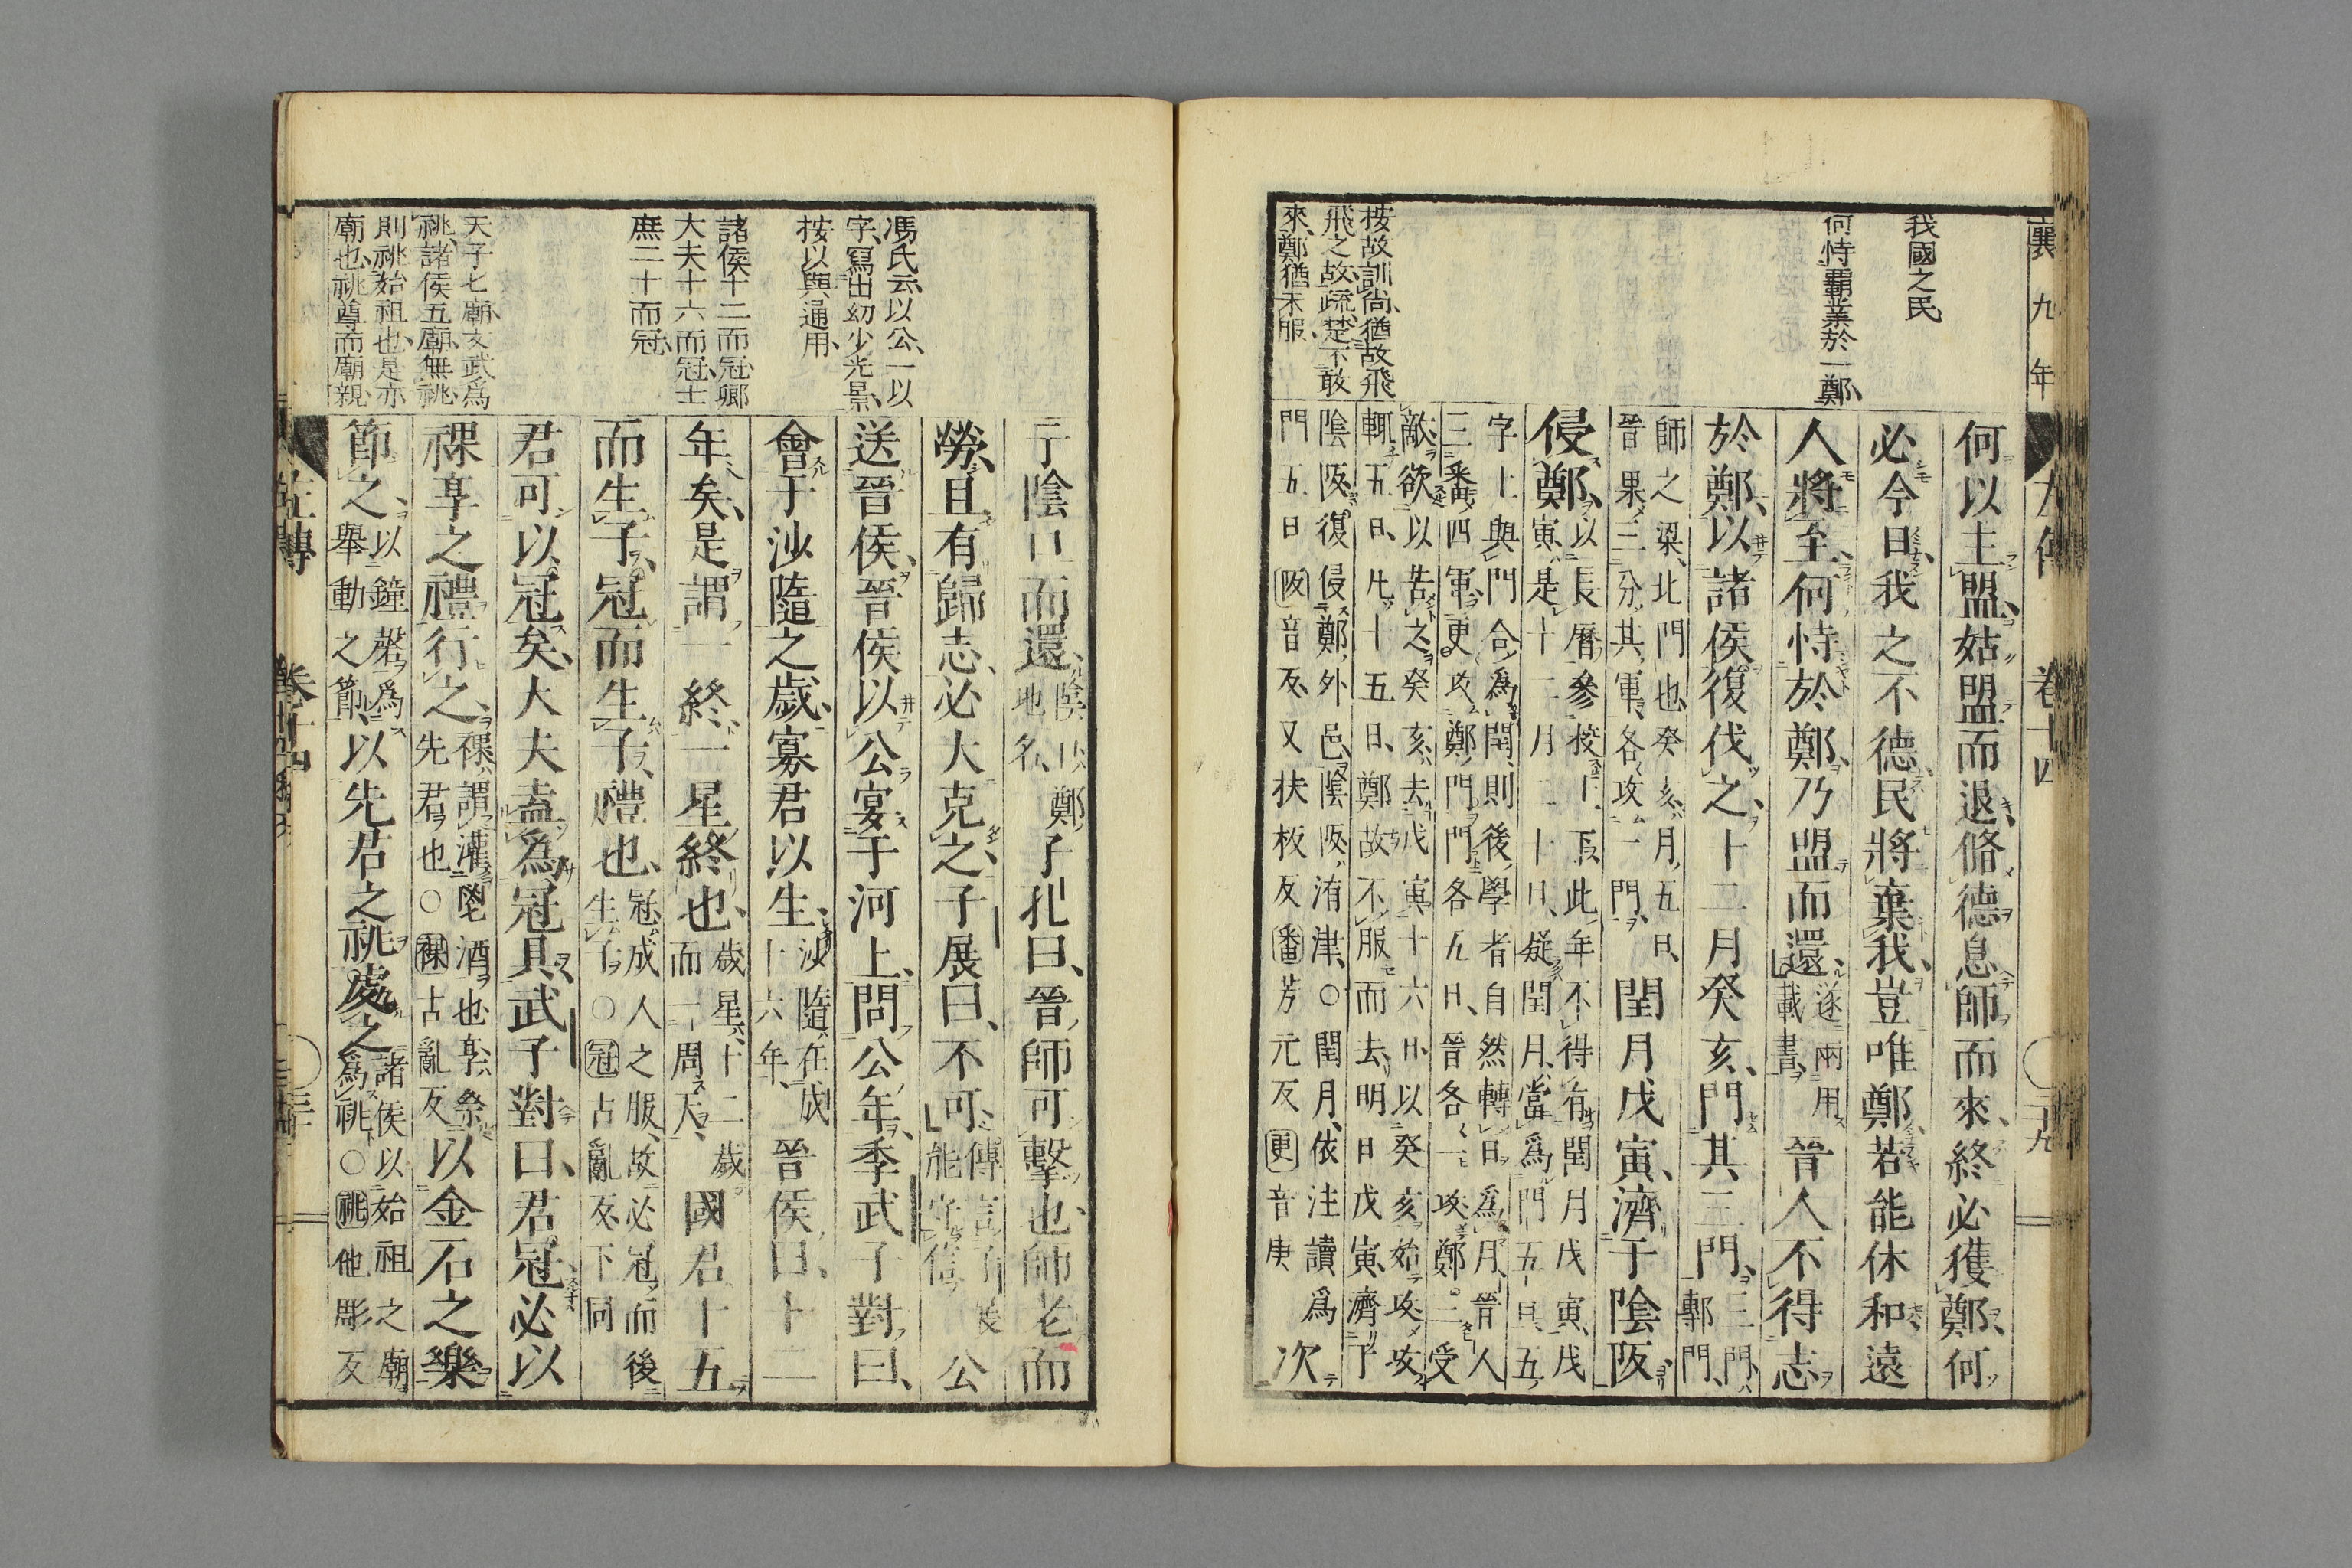 襄九年
我國之民
何恃霸業於一鄭
按故訓尚猶故飛
飛之故疏楚不敢
來鄭猶未服
左傳 卷十四 二十九
何以主盟姑盟而退脩德息師而來終必獲鄭何
必今日我之不德民將棄我豈唯鄭若能休和遠
人將至何恃於鄭乃盟而還遂兩用載書晉人不得志
於鄭以諸侯復伐之十二月癸亥門其三門三門鄟門
師之梁北門也癸亥月五日
晉果三分其軍各攻一門
閏月戊寅濟于陰阪
侵鄭
以長曆參校上下此年不得有閏月戊寅戊
寅是十二月二十日疑閏月當爲門五日五
字上與門合爲閏則後學者自然轉日爲月晉人
三番四軍更攻鄭門門各五日晉各一攻鄭三受
敵欲以苦之癸亥去戊寅十六日以癸亥始攻攻
輒五日凡十五日鄭故不服而去明日戊寅濟于
陰阪復侵鄭外邑陰阪洧津○閏月依注讀爲
門五日阪音反又扶板反番芳元反更音庚
次
馮氏云以公一以
字冩出幼少光景
按以與通用
諸侯十二而冠卿
大夫十六而冠士
庶二十而冠
天子七廟文武爲
祧諸侯五廟無祧
則祧始祖也是亦
廟也祧尊而廟親
于陰口而還陰口鄭地名子孔曰晉師可擊也師老而
勞且有歸志必大克之子展曰不可傳言子展能守信公
送晉侯晉侯以公宴于河上問公年季武子對曰
會于沙隨之歲寡君以生沙隨在成十六年晉侯曰十二
年矣是謂一終一星終也歲星十二歲而一周天國君十五
而生子冠而生子禮也冠成人之服故必冠而後生子○冠古亂反下同
君可以冠矣大夫盍爲冠具武子對曰君冠必以
祼享之禮行之祼謂灌鬯酒也享祭先君也○祼古亂反以金石之樂
節之以鐘磬爲舉動之節以先君之祧處之諸侯以始祖之廟爲祧○祧他彫反
左傳 卷十四 三十